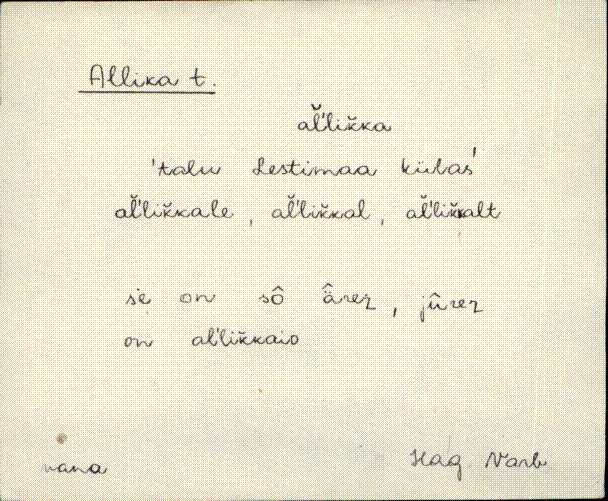 Allika t.
al̆'lik̆ka
'talu Lestimaa külas'
al̆'lik̆kale, al̆'lik̆kal, al̆'lik̆kalt
se on sô ä̂rez, jûrez
on al̆'lik̆kaio
vana
Hag. Varb